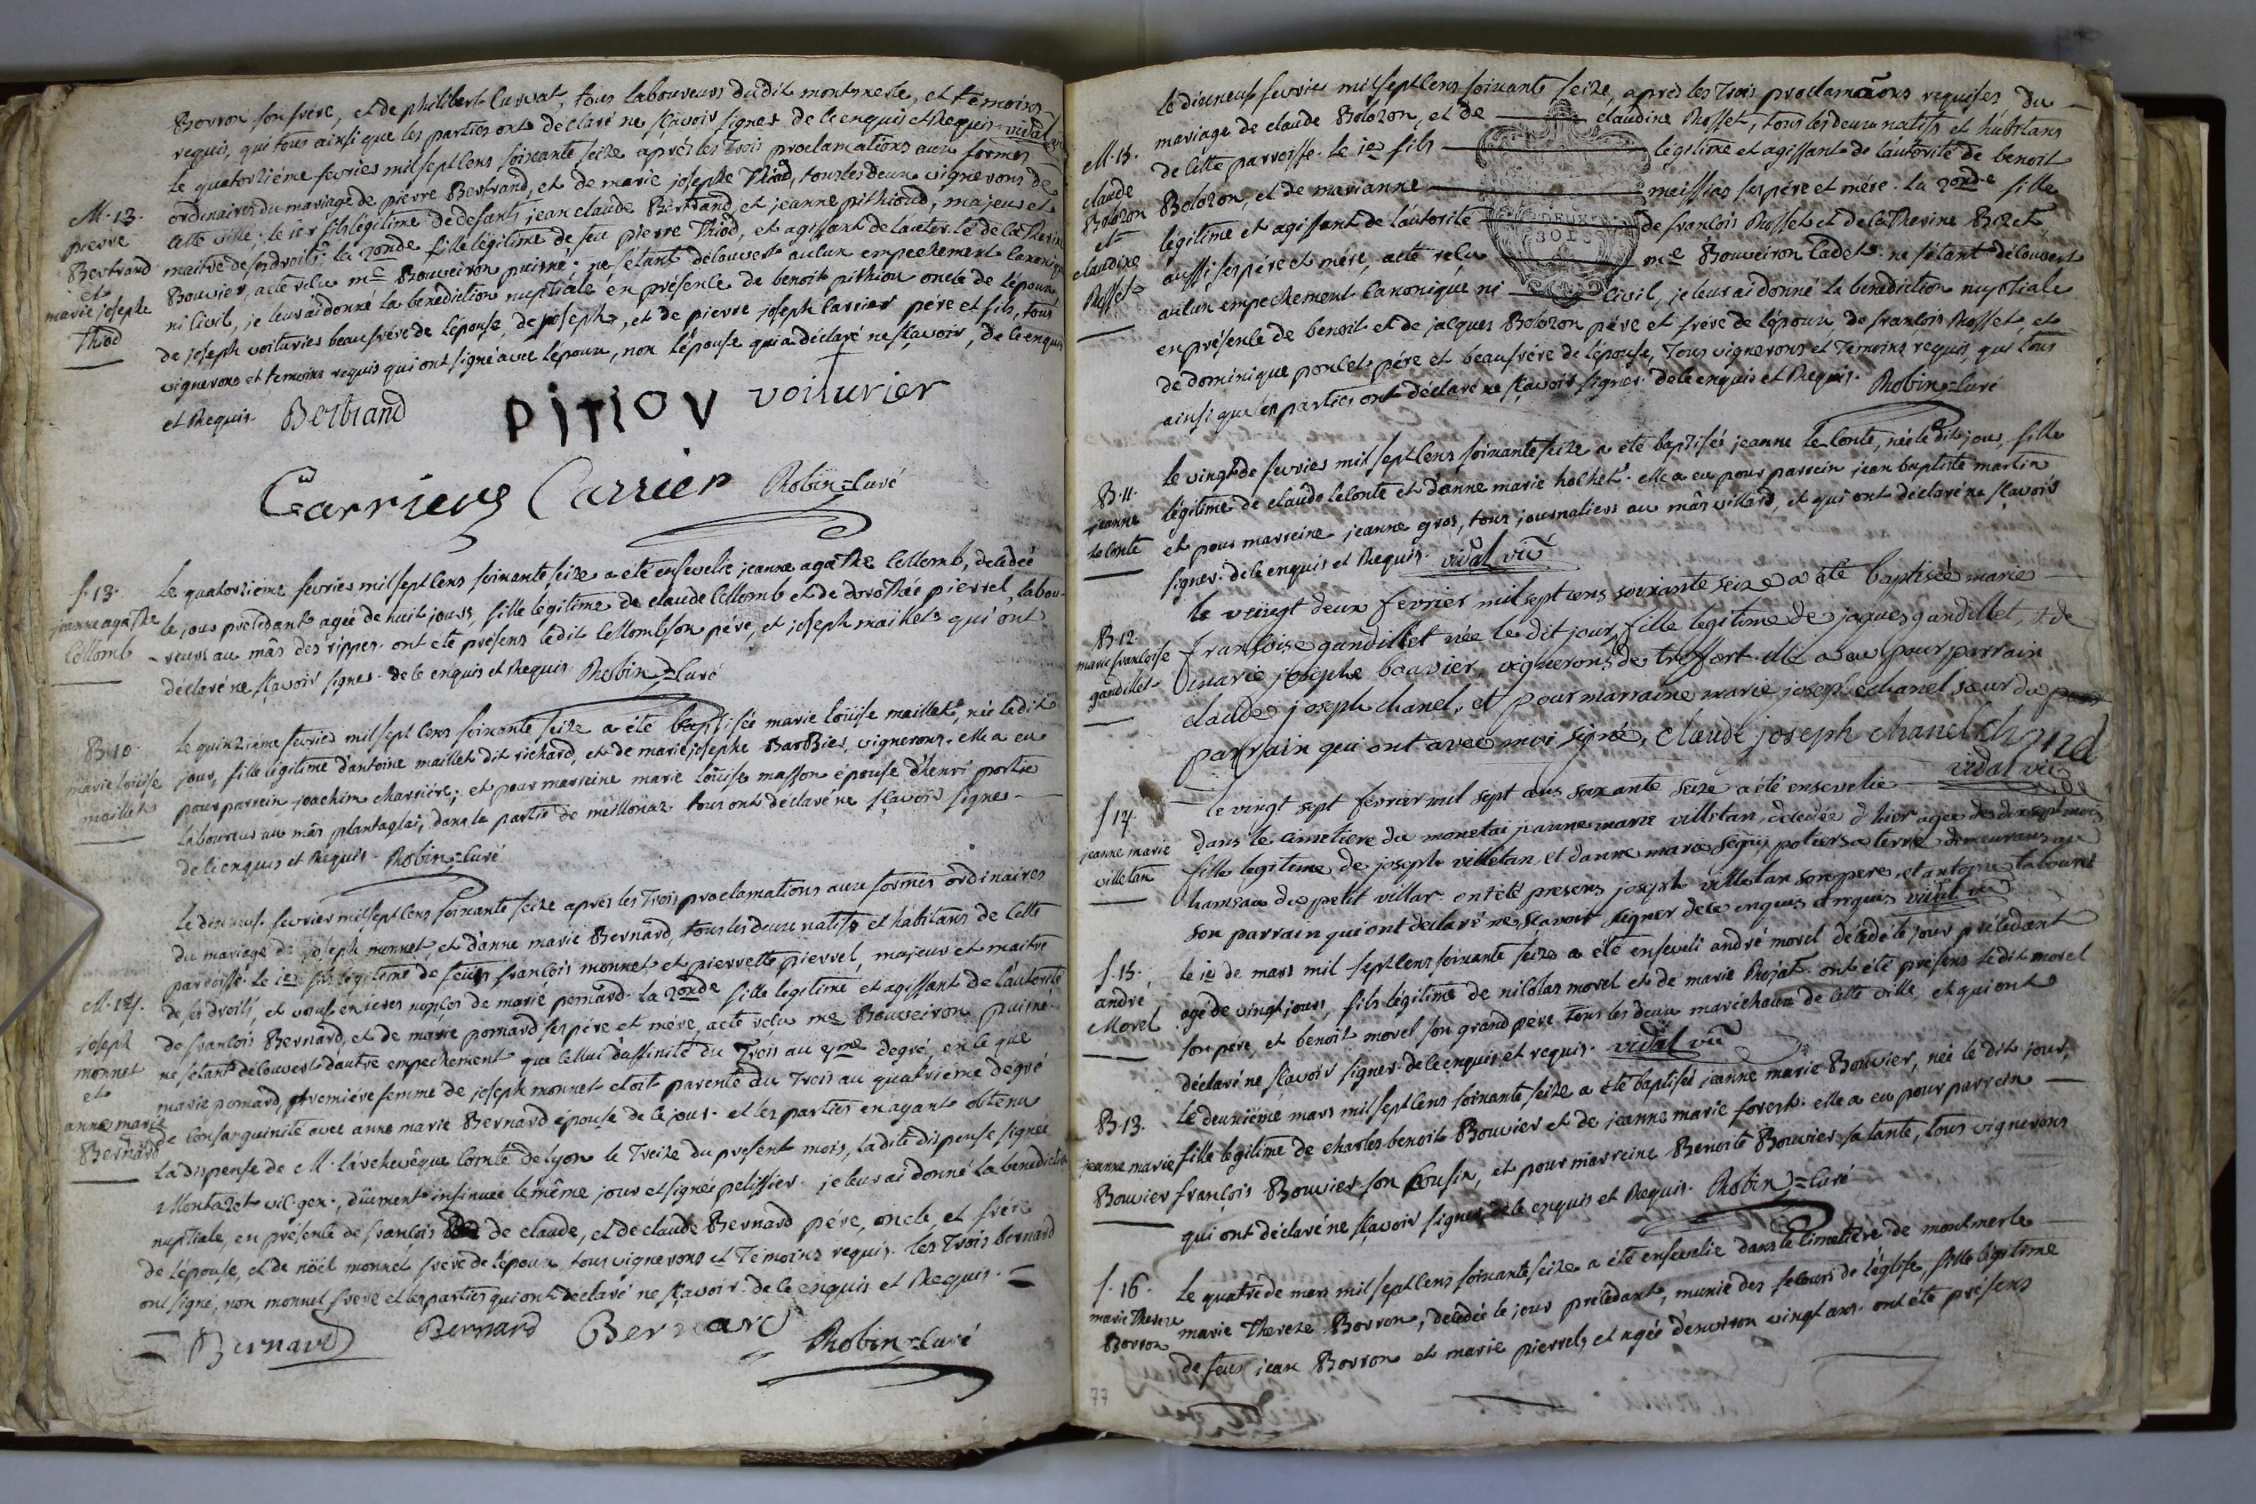 Borron son frère, et de philibert Curvat, tous laboureurs dudit montmerle, et témoins
requis, qui tous ainsi que les parties ont déclaré ne sçavoir signer de ce enquis et Requis. vidal vic
M. 13.
pierre
Bertrand
et
marie josephe
Thiod
Le quatorzième fevrier mil sept cens soixante seize après les Trois proclamations aux formes
ordinaires du mariage de pierre Bertrand, et de marie josephe Thiod, tous les deux vignerons de
cette ville; le 1er fils légitime de defants jean claude Bertrand et jeanne pithioud, majeur et
maitre de ses droits; la 2onde fille légitime de feu pierre Thiod, et agissant de l'autorité de catherine
Bouvier, acte reçu me Bouveiron puisné; ne s'étant découvert aucun empechement canonique
ni civil, je leur ai donné la benediction nuptiale en présence de benoit pithiou oncle de l'époux,
de joseph voiturier beaufrère de l'épouse, de joseph, et de pierre joseph Carrier père et fils, tous
vignerons et temoins requis qui ont signé avec l'époux, non l'épouse qui a déclaré ne sçavoir, de ce enquis
et Requis. Bertrand PITIOV voiturier
Carrier Carrier Robin = Curé
S. 13.
jeanne agathe
Collomb
Le quatorzième fevrier mil sept cens soixante seize a été ensevelie jeanne agathe Collomb, decedée
le jour précédant agée de huit jours, fille légitime de claude Collomb et de dorothée pierrel, labou-
-reurs au mâs des rippes. ont été présens ledit Collomb son père, et joseph maillet qui ont
déclaré ne sçavoir signer. de ce enquis et Requis. Robin = Curé
B. 10.
marie louise
maillet
Le quinzième fevrier mil sept cens soixante seize a été baptisée marie loüise maillet, née ledit
jour, fille légitime d'antoine maillet dit richard, et de marie josephe BarBier, vignerons. elle a eu
pour parrein joachim charrière; et pour marreine marie loüise masson épouse d'henri portier
laboureur au mâs plantaglai, dans la partie de meillonaz. tous ont déclaré ne sçavoir signer
de ce enquis et Requis. Robin = Curé
M. 14.
joseph
monnet
et
anne marie
Bernard
Le dixneuf fevrier mil sept cens soixante seize après les Trois proclamations aux formes ordinaires
du mariage de joseph monnet, et d'anne marie Bernard, tous les deux natifs et habitans de cette
parroisse. le 1er fils légitime de feus françois monnet et pierrette pierrel, majeur et maitre
de ses droits, et veuf en 1eres nopces de marie pomard. la 2onde fille legitime et agissant de l'autorité
de françois Bernard, et de marie pomard ses père et mère, acte reçu me Bouveiron puisné.
ne s'étant découvert d'autre empechement que celui d'affinité du Trois au 4me degré, en ce que
marie pomard, premiére femme de joseph monnet etoit parente du Trois au quatrieme dégré
de consanguinité avec anne marie Bernard épouse de ce jour. et les parties en ayant obtenu
la dispense de M. l'archevêque Comte de lyon le Treize du présent mois, ladite dispense signée
Montazet vic. gen., düement insinuée le même jour et signée pelissier. je leur ai donné la benediction
nuptiale, en présence de françois de claude, et de claude Bernard père, oncle et frère
de l'épouse, et de nöel monnet frère de l'époux, tous vignerons et Témoins requis. les Trois bernard
ont signé, non monnet frère et les parties qui ont declaré ne sçavoir. de ce enquis et Requis.
Bernard Bernard Bernard Robin = Curé
M. 15.
claude
Bolozon
et
claudine
Rosset
Le dixneuf fevrier mil sept cens soixante seize, après les Trois proclamãons requises, du
mariage de claude Bolozon, et de claudine Rosset, tous les deux natifs et habitans
de cette parroisse. le 1er fils légitime et agissant de l'autorité de benoit
Bolozon, et de marianne meissias ses père et mère. la 2onde fille
légitime et agissant de l'autorité de françois Rosset et de catherine Bozet
aussi ses père et mère, acte reçu me Bouveiron Cadet. ne s'étant découvert
aucun empechement canonique ni civil, je leur ai donné la benediction nuptiale
en présence de benoit et de jacques Bolozon père et frère de l'époux, de françois Rosset, et
de dominique poncet père et beaufrère de l'épouse, Tous vignerons et Temoins requis, qui tous
ainsi que les parties ont déclaré ne sçavoir signer. de ce enquis et Requis. Robin = Curé
DEUX
SOLS
B. 11.
jeanne
le conte
Le vingt de fevrier mil sept cens soixante seize a été baptisée jeanne le Conte, née le dit jour, fille
légitime de claude le conte et d'anne marie hochet. elle a eu pour parrein jean baptiste martin
et pour marreine jeanne gros, tous journaliers au mâs villard, et qui ont déclaré ne sçavoir
signer. de ce enquis et Requis. vidal vic
B. 12.
marie françoise
gandillet
le vingt deux fevrier mil sept cens soixante seize a été baptisée marie
françoise gandillet née le dit jour, fille legitime de jaques gandillet, et de
marie josephe bouvier, vignerons de treffort elle a eu pour parrain
claude joseph chanel, et pour marraine marie joseph echanel sœur du
parrain qui ont avec moi signé, claude joseph chanel chanel
vidal vic
S. 14.
jeanne marie
villetan
le vingt sept fevrier mil sept cens soixante seize a été ensevelie
dans le cimetiere de monetai jeanne marie villetan, decedée d'hier agée de dix sept mois
fille legitime de joseph villetan et d'anne marie seguy potiers a terre demeurans au
hameau du petit villar ont été presens joseph villetan son pere, et antoine labouret
son parrain qui ont declaré ne sçavoir signer de ce enquis et requis vidal vic
S. 15.
andré
Morel
le 1er de mars mil sept cens soixante seize a été enseveli andré morel décédé le jour précédant
agé de vingt jours, fils légitime de nicolas morel et de marie Rojat. ont été présens ledit morel
son père, et benoit morel son grand père Tous les deux maréchaux de cette ville et qui ont
déclaré ne sçavoir signer. de ce enquis et requis. vidal vic
B. 13.
jeanne marie
Bouvier
Le deuxième mars mil sept cens soixante seize a été baptisée jeanne marie Bouvier, née le dit jour,
fille légitime de charles benoit Bouvier et de jeanne marie forest. elle a eu pour parrein
françois Bouvier son Cousin, et pour marreine Benoite Bouvier sa tante, tous vignerons
qui ont déclaré ne sçavoir signer de ce enquis et Requis. Robin = Curé
S. 16.
marie Therese
Borron
Le quatre de mars mil sept cens soixante seize a été ensevelie dans le cimetière de montmerle
marie Thereze Borron, décédée le jour précédant, munie des secours de l'église, fille légitime
de feus jean Borron et marie pierrel, et agée d'environ vingt ans. ont été présens
77